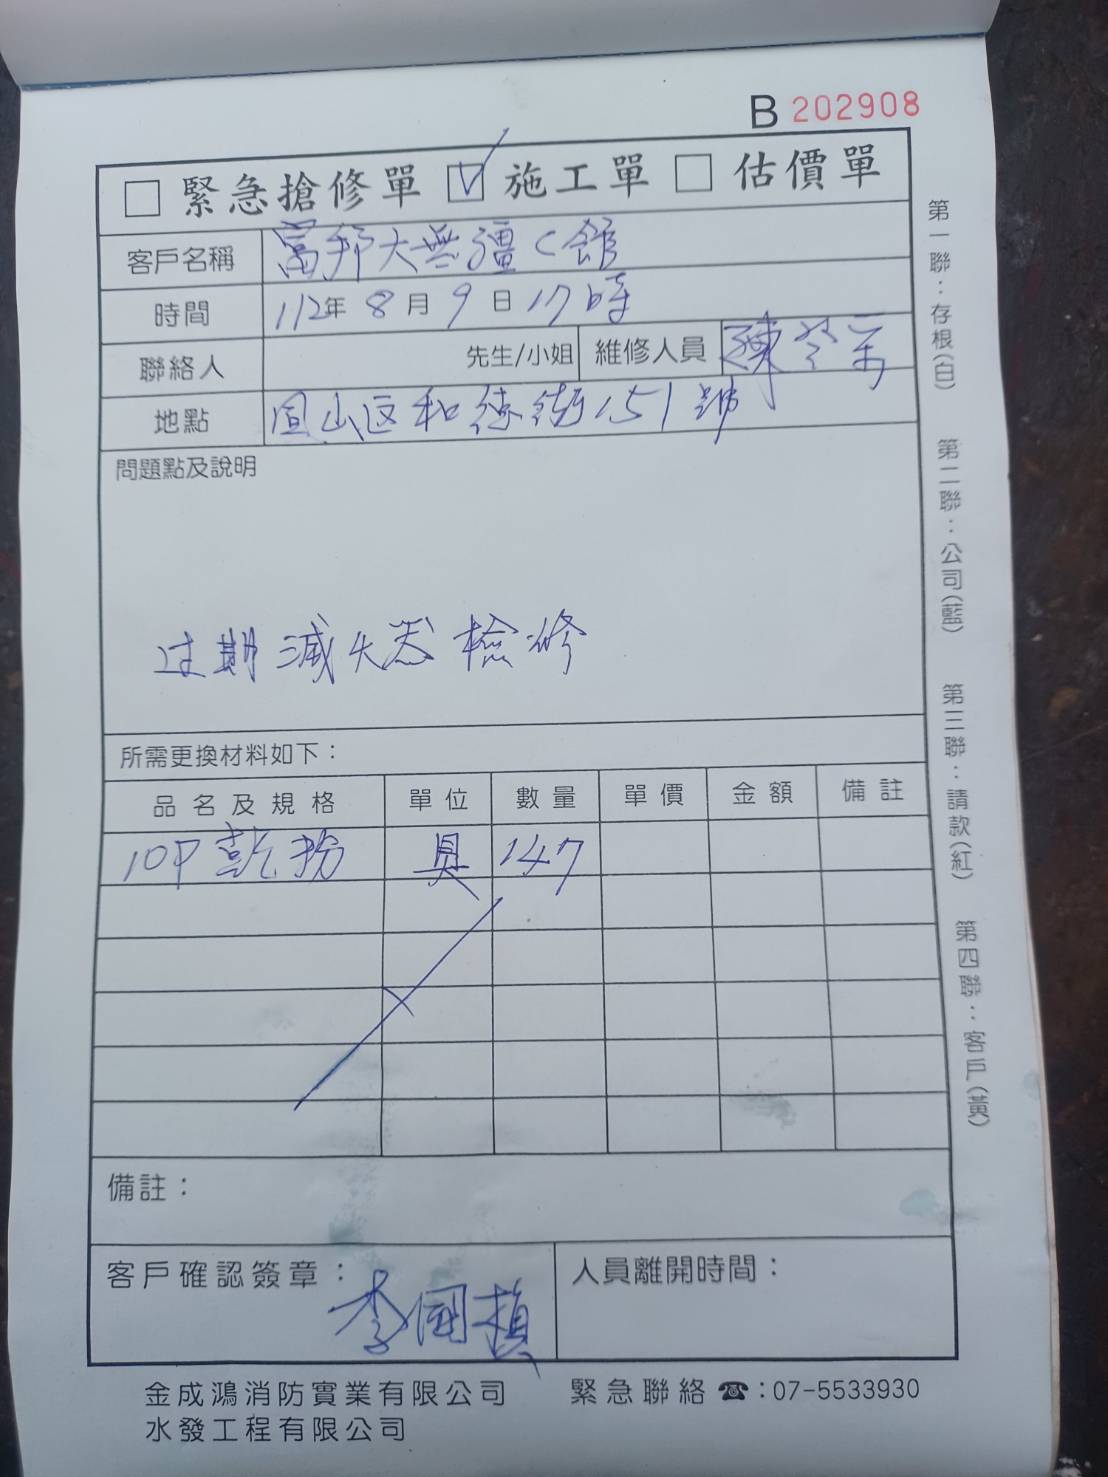 B 202908
□ 緊急搶修單 ☑ 施工單 □ 估價單
客戶名稱 富邦大無疆C館
時間 112年 8月 9日 17時
聯絡人 先生/小姐 維修人員 陳
地點 鳳山区和德街151號
問題點及說明
过期滅火器檢修
所需更換材料如下：
品名及規格 單位 數量 單價 金額 備註
10P乾粉 具 147
備註：
客戶確認簽章： 李國楨 人員離開時間：
金成鴻消防實業有限公司 緊急聯絡☎：07-5533930
水發工程有限公司
第一聯：存根(白)
第二聯：公司(藍)
第三聯：請款(紅)
第四聯：客戶(黃)